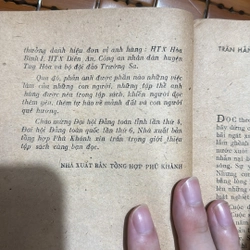 thưởng danh hiệu đơn vị anh hùng : HTX Hòa
Bình I, HTX Diên An, Công an nhân dân huyện
Tuy Hòa và bộ đội đảo Trường Sa.
Qua đó, phản ánh được phần nào những việc
làm của những con người, những tập thể anh
hùng được nêu trong tập sách, khiến người đọc
thêm yêu, thêm tự hào về mảnh đất và con người
quê hương.
Chào mừng Đại hội Đảng toàn tỉnh lần thứ 4,
Đại hội Đảng toàn quốc lần thứ 6, Nhà xuất bản
tổng hợp Phú Khánh xin trân trọng giới thiệu
tập sách cùng bạn đọc.
NHÀ XUẤT BẢN TỔNG HỢP PHÚ KHÁNH
TRẦN
DỌC